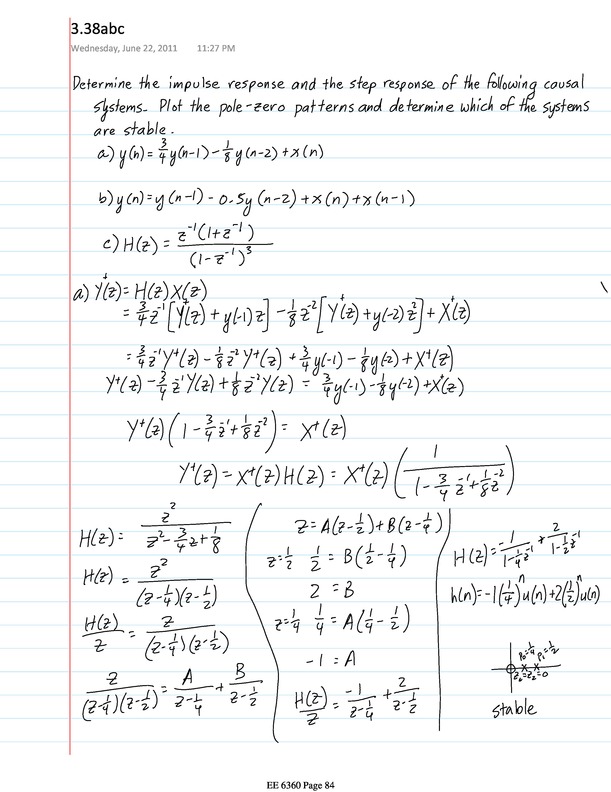 3.38abc
Wednesday, June 22, 2011 11:27 PM
Determine the impulse response and the step response of the following causal
systems. Plot the pole-zero patterns and determine which of the systems
are stable.
a) y(n)= 3/4 y(n-1) - 1/8 y(n-2) + x(n)
b) y(n)= y(n-1) - 0.5y(n-2) + x(n) + x(n-1)
c) H(z) = z⁻¹(1+z⁻¹) / (1-z⁻¹)³
a) Y⁺(z)= H(z)X(z)
= 3/4 z⁻¹[Y⁺(z) + y(-1)z] - 1/8 z⁻²[Y⁺(z) + y(-2)z²] + X⁺(z)
= 3/4 z⁻¹Y⁺(z) - 1/8 z⁻²Y⁺(z) + 3/4 y(-1) - 1/8 y(-2) + X⁺(z)
Y⁺(z) - 3/4 z⁻¹Y(z) + 1/8 z⁻²Y(z) = 3/4 y(-1) - 1/8 y(-2) + X⁺(z)
Y⁺(z)(1 - 3/4 z⁻¹ + 1/8 z⁻²) = X⁺(z)
Y⁺(z) = X⁺(z)H(z) = X⁺(z)(1 / (1 - 3/4 z⁻¹ + 1/8 z⁻²))
H(z) = z² / (z² - 3/4 z + 1/8)
H(z) = z² / ((z-1/4)(z-1/2))
H(z)/z = z / ((z-1/4)(z-1/2))
z / ((z-1/4)(z-1/2)) = A/(z-1/4) + B/(z-1/2)
z = A(z-1/2) + B(z-1/4)
z=1/2 1/2 = B(1/2-1/4)
2 = B
z=1/4 1/4 = A(1/4-1/2)
-1 = A
H(z)/z = -1/(z-1/4) + 2/(z-1/2)
H(z) = -1/(1-1/4 z⁻¹) + 2/(1-1/2 z⁻¹)
h(n) = -1(1/4)ⁿu(n) + 2(1/2)ⁿu(n)
p₀=1/4 p₁=1/2
z₁=z₂=0
stable
EE 6360 Page 84